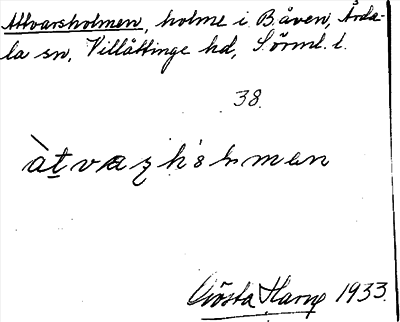 Attvarsholmen, holme i Båven, Årda-
la sn, Villåttinge hd, Sörml. l.
38.
àt̲vaʒhòlmen
Gösta Harve 1933.